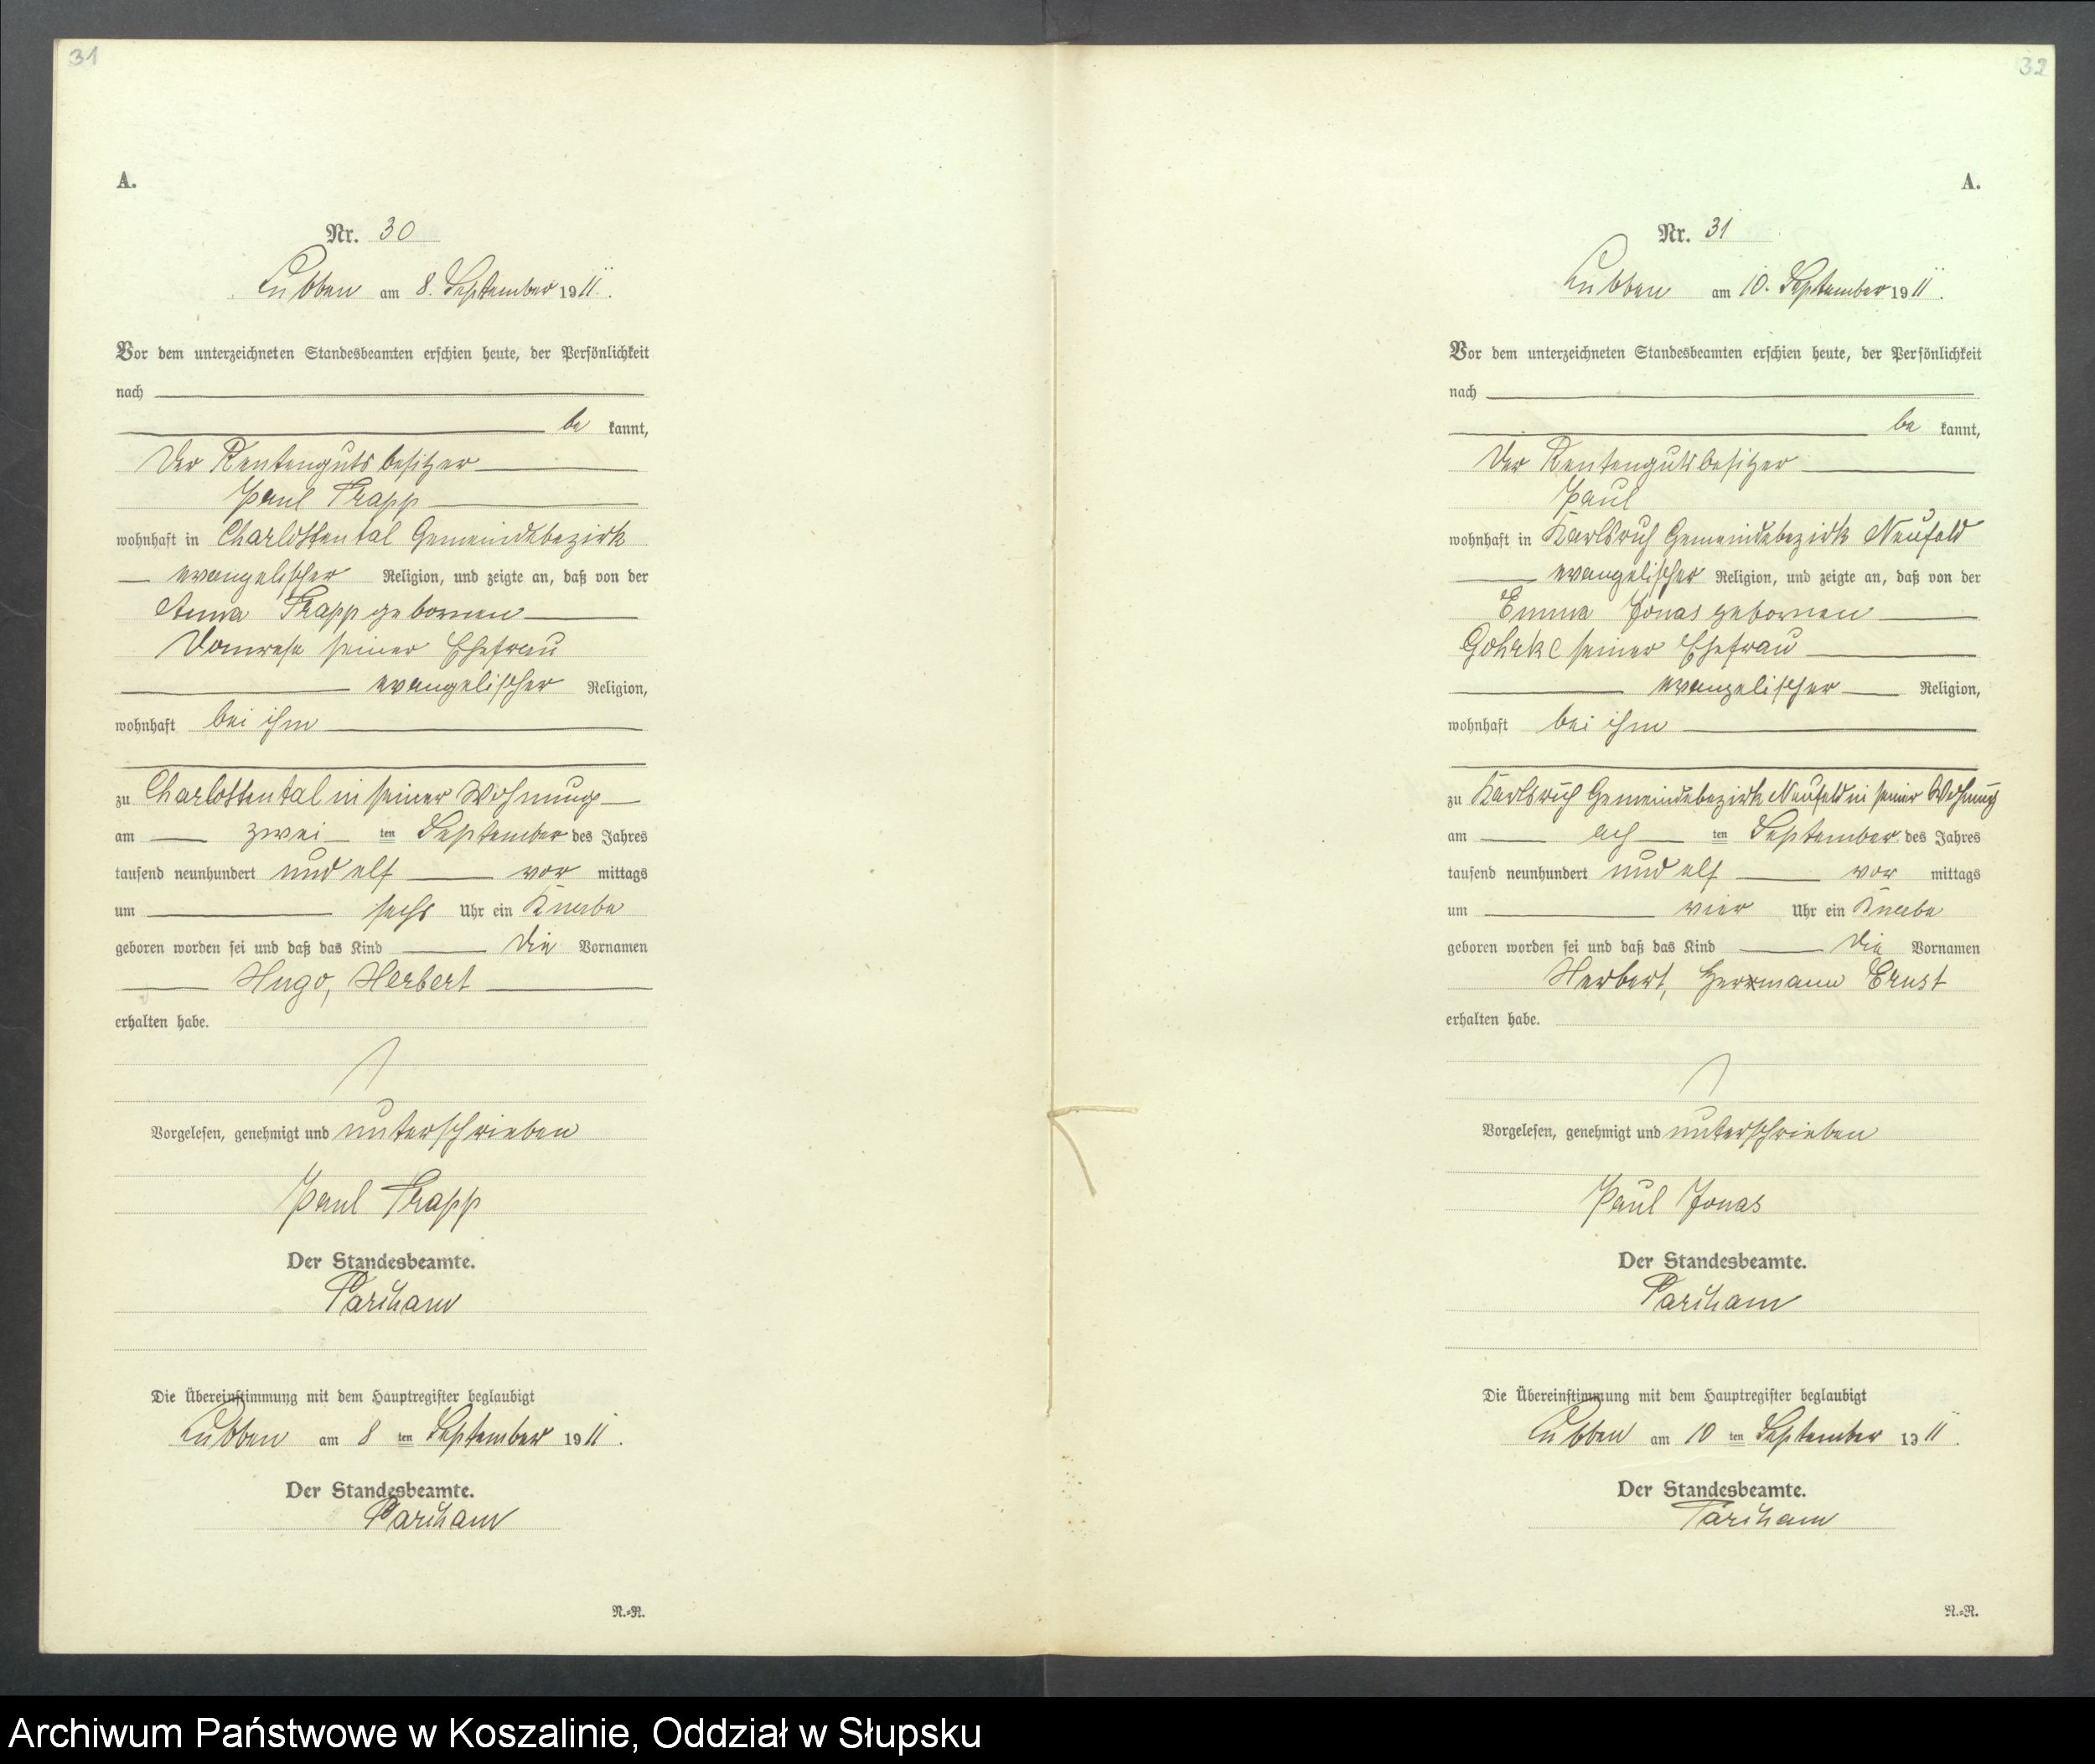 31
A.
Nr. 30
Lubben am 8. September 1911.
Vor dem unterzeichneten Standesbeamten erschien heute, der Persönlichkeit
nach
be kannt,
der Rentengutsbesitzer
Paul Trapp
wohnhaft in Charlottental Gemeindebezirk
evangelischer Religion, und zeigte an, daß von der
Anna Trapp gebornen
seiner Ehefrau
evangelischer Religion,
wohnhaft bei ihm
zu Charlottental in seiner Wohnung
am zwei ten September des Jahres
tausend neunhundert und elf vor mittags
um sechs Uhr ein Knabe
geboren worden sei und daß das Kind die Vornamen
Hugo, Herbert
erhalten habe.
Vorgelesen, genehmigt und unterschrieben
Paul Trapp
Der Standesbeamte.
Die Übereinstimmung mit dem Hauptregister beglaubigt
Lubben am 8 ten September 1911.
Der Standesbeamte.
R.=R.
32
A.
Nr. 31
Lubben am 10. September 1911.
Vor dem unterzeichneten Standesbeamten erschien heute, der Persönlichkeit
nach
be kannt,
der Rentengutsbesitzer
Paul
wohnhaft in Karlsruh Gemeindebezirk Neufeld
evangelischer Religion, und zeigte an, daß von der
Emma Jonas gebornen
Gohrke seiner Ehefrau
evangelischer Religion,
wohnhaft bei ihm
zu Karlsruh Gemeindebezirk Neufeld in seiner Wohnung
am ach ten September des Jahres
tausend neunhundert und elf vor mittags
um vier Uhr ein Knabe
geboren worden sei und daß das Kind die Vornamen
Herbert, Hermann Ernst
erhalten habe.
Vorgelesen, genehmigt und unterschrieben
Paul Jonas
Der Standesbeamte.
Die Übereinstimmung mit dem Hauptregister beglaubigt
Lubben am 10 ten September 1911.
Der Standesbeamte.
R.=R.
Archiwum Państwowe w Koszalinie, Oddział w Słupsku